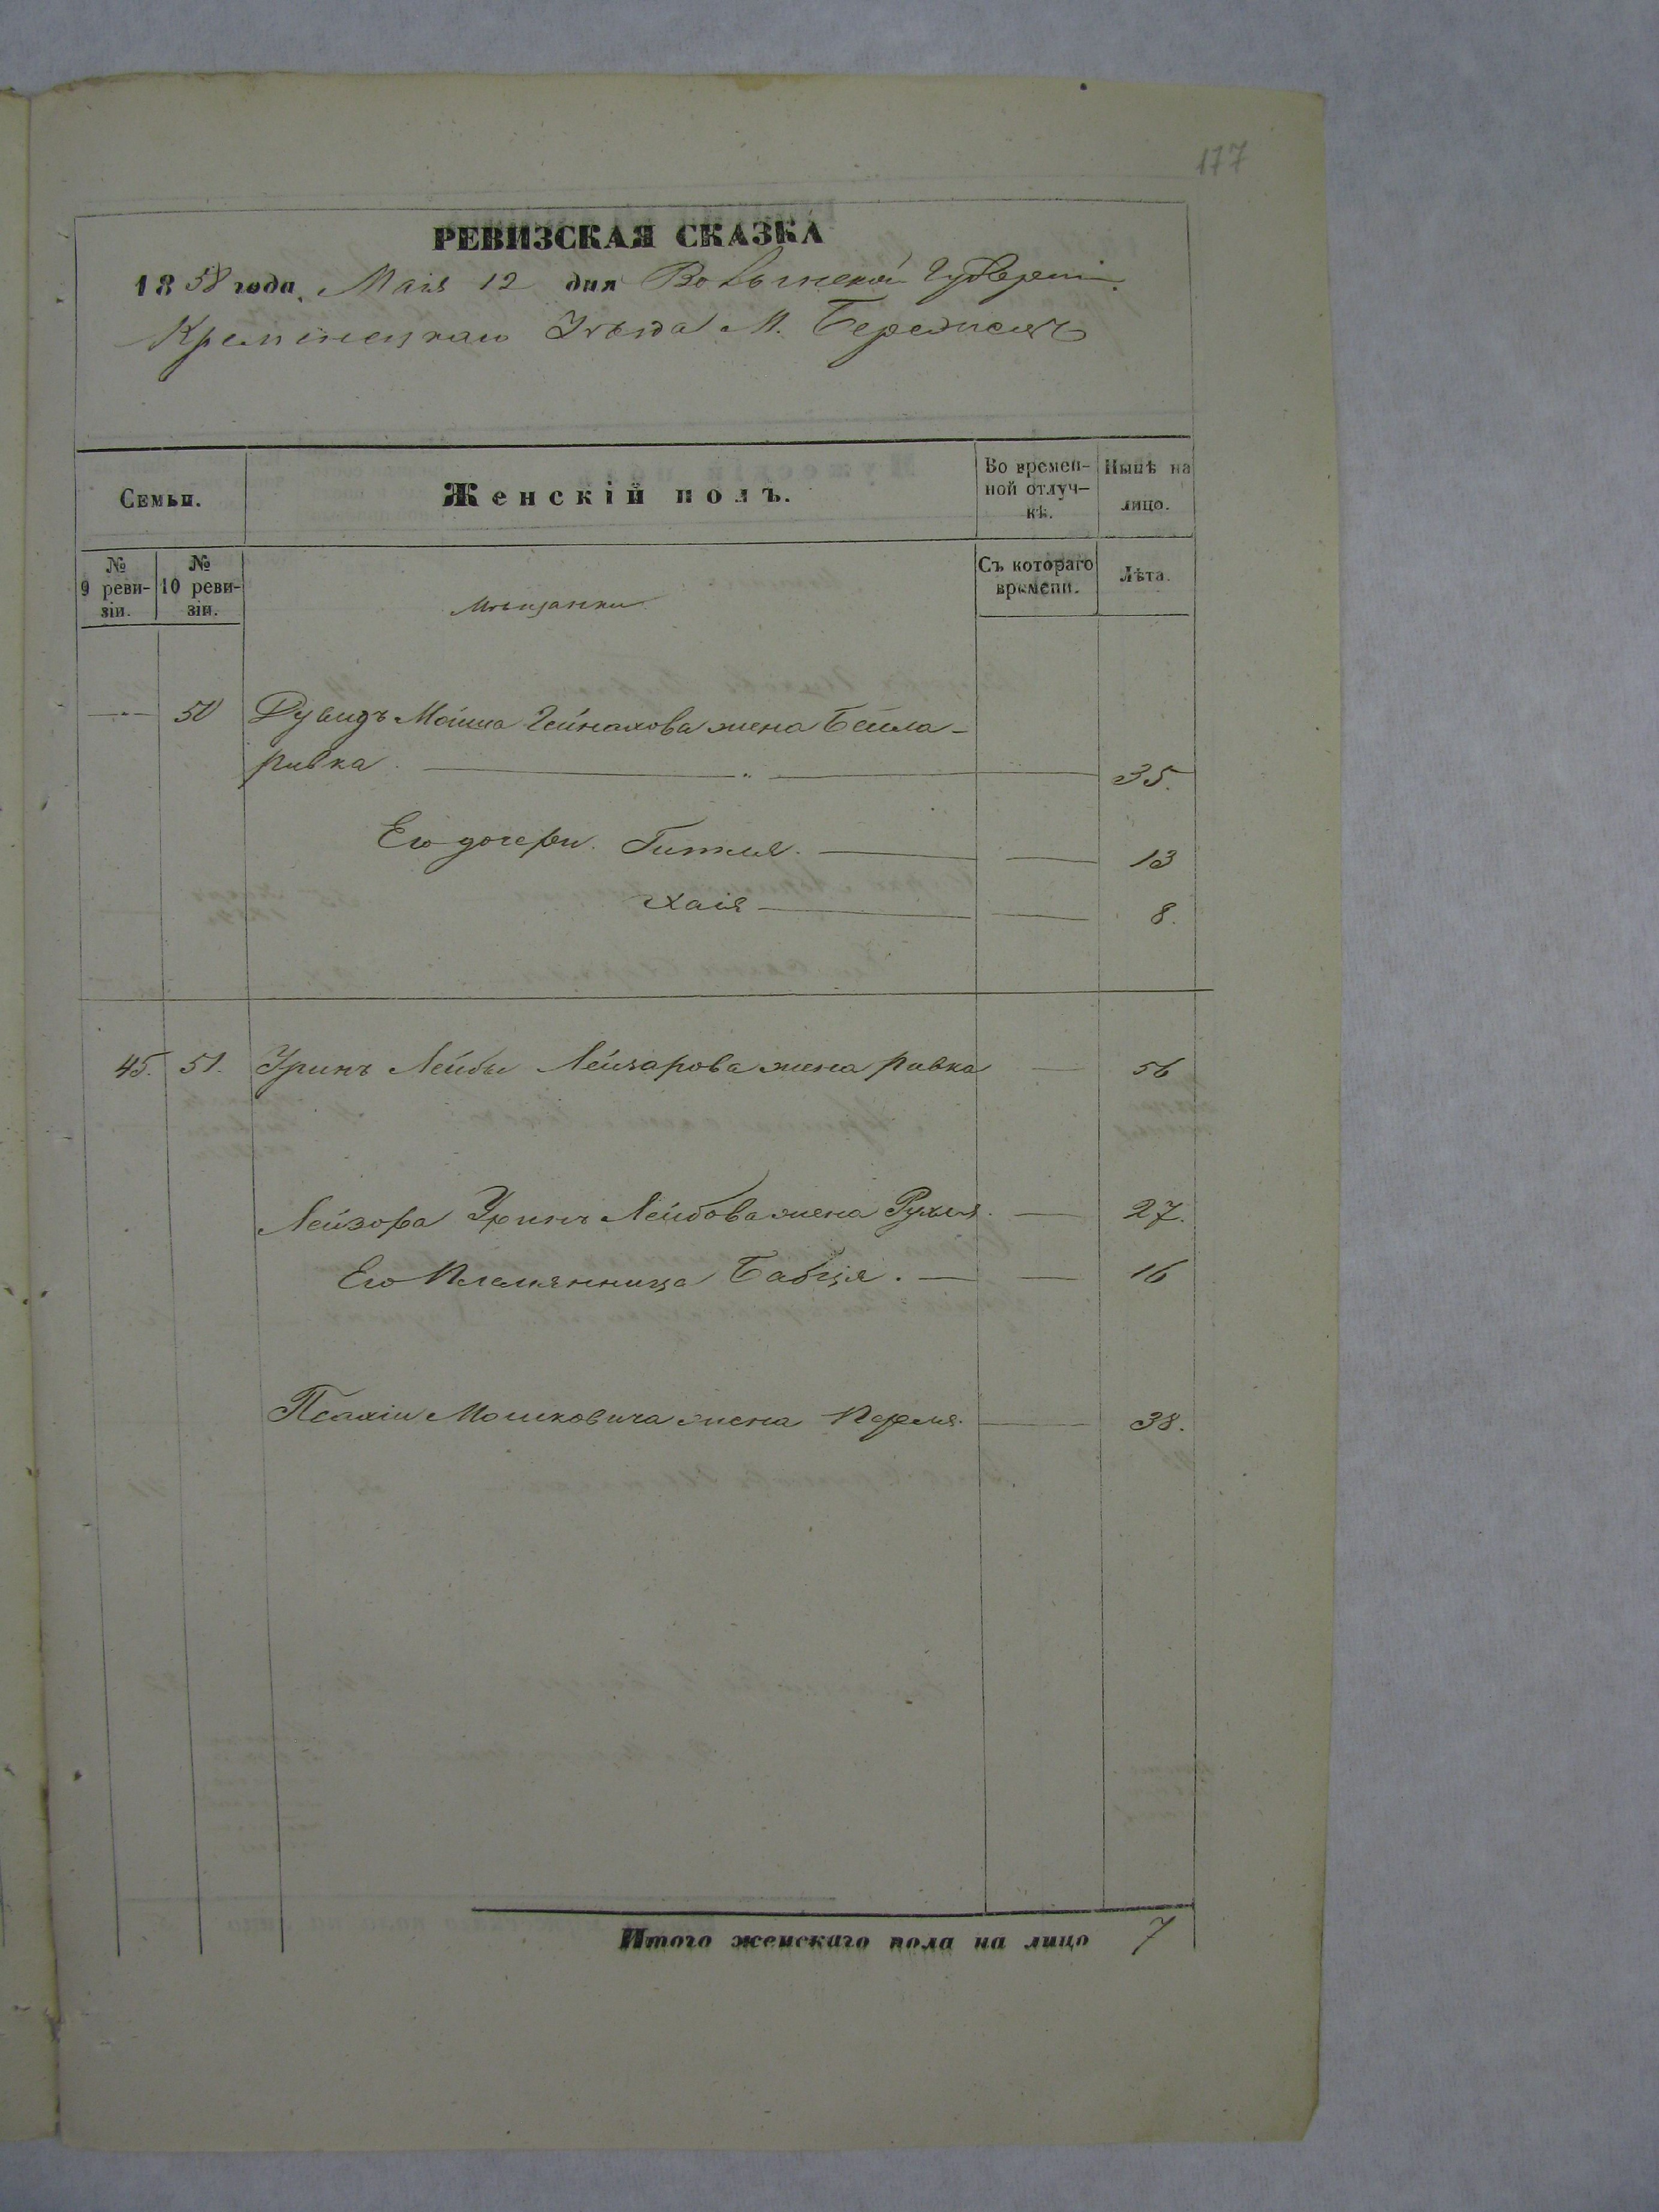 177
РЕВИЗСКАЯ СКАЗКА
1858 года, Маія 12 дня Волынской Губерніи
Кременецкаго Уѣзда М. Бережецъ
Семьи.
Женскій полъ.
Во времен-
ной отлуч-
кѣ.
Нынѣ на
лицо.
№
9 реви-
зіи.
№
10 реви-
зіи.
Мѣщанки
Съ котораго
времени.
Лѣта.
— 50 Дувидъ Мойша Гейнахова жена Бейла-
Ривка — — 35.
Его дочери. Гитля. — — 13
Хаія — — 8.
45. 51. Уринъ Лейбы Лейзарова жена Ривка — 56
Лейзора Уринъ Лейбова жена Рухля. — 27.
Его Племянница Бабця. — — 16
Псахіи Мошковича жена Перля. — 38.
Итого женскаго пола на лицо 7